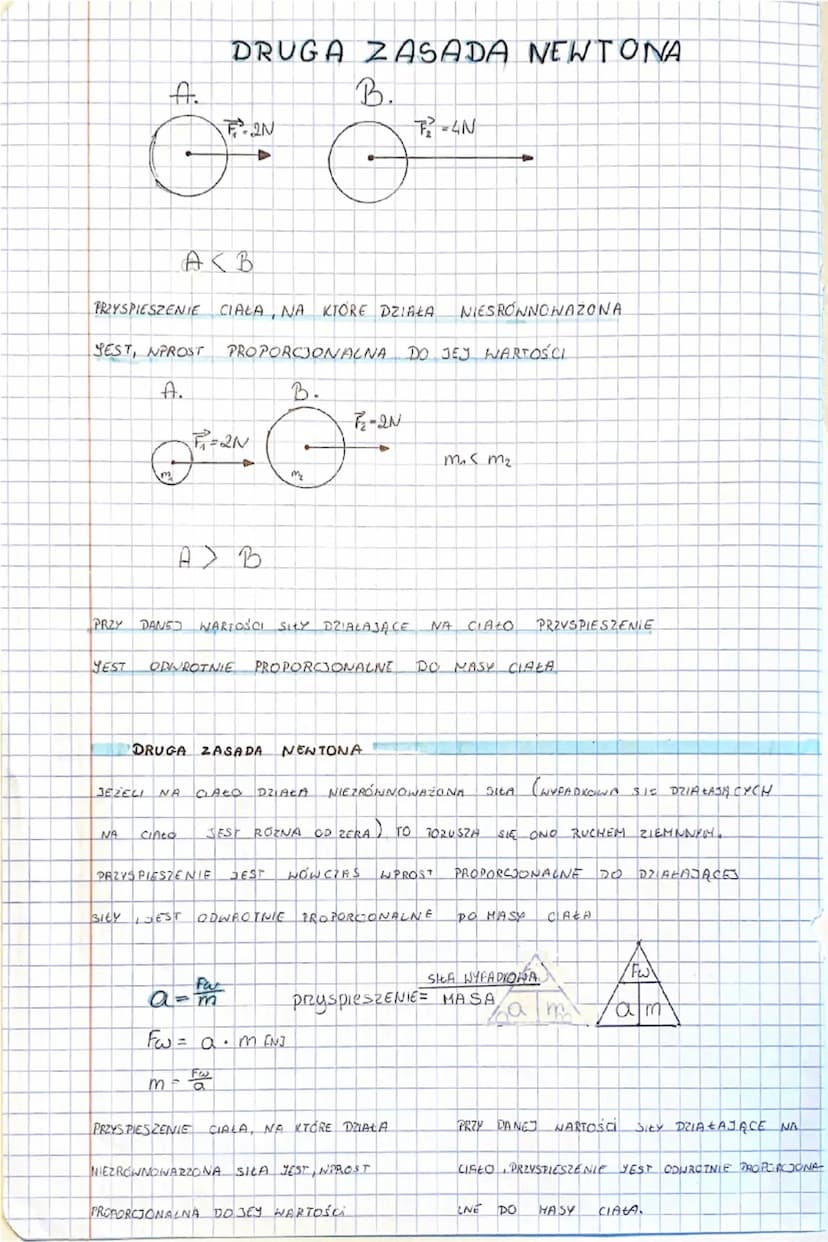 DRUGA ZASADA NEWTONA
A. B.
F₁=2N F₂=4N
A < B
PRZYSPIESZENIE CIAŁA, NA KTÓRE DZIAŁA NIESRÓWNOWAŻONA
JEST, WPROST PROPORCJONALNA DO JEJ WARTOŚCI
A. B.
F₁=2N F₂=2N
m₁ m₂ m₁ < m₂
A > B
PRZY DANEJ WARTOŚCI SIŁY DZIAŁAJĄCE NA CIAŁO PRZYSPIESZENIE
JEST ODWROTNIE PROPORCJONALNE DO MASY CIAŁA
DRUGA ZASADA NEWTONA
JEŻELI NA CIAŁO DZIAŁA NIEZRÓWNOWAŻONA SIŁA (WYPADKOWA SIŁ DZIAŁAJĄCYCH
NA CIAŁO JEST RÓŻNA OD ZERA) TO PORUSZA SIĘ ONO RUCHEM ZIEMNNYM.
PRZYSPIESZENIE JEST WÓWCZAS WPROST PROPORCJONALNE DO DZIAŁAJĄCEJ
SIŁY I JEST ODWROTNIE PROPORCONALNE DO MASY CIAŁA
a = Fw/m przyspieszenie = SIŁA WYPADKOWA/MASA a m Fw a m
Fw = a · m [N]
m = Fw/a
PRZYSPIESZENIE CIAŁA, NA KTÓRE DZIAŁA
NIEZRÓWNOWAŻZONA SIŁA JEST, WPROST
PROPORCJONALNA DO JEJ WARTOŚCI
PRZY DANEJ WARTOŚCI SIŁY DZIAŁAJĄCE NA
CIAŁO, PRZYSPIESZENIE JEST ODWROTNIE PROPORCJONA-
LNE DO MASY CIAŁA.